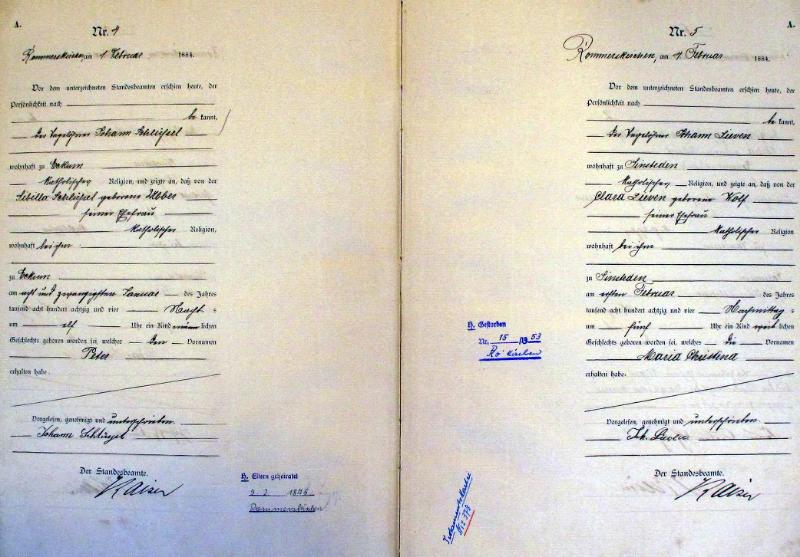 A.
Nr. 4
Rommerskirchen, am 1 Februar 1884.
Vor dem unterzeichneten Standesbeamten erschien heute, der
Persönlichkeit nach
be kannt,
der Tagelöhner Johann Schlüssel
wohnhaft zu Eckum
katholischer Religion, und zeigte an, daß von der
Sibilla Schlüssel geborene Weber
seiner Ehefrau
katholischer Religion,
wohnhaft bei ihm
zu Eckum
am acht und zwanzigsten Januar des Jahres
tausend acht hundert achtzig und vier Nachts
um elf Uhr ein Kind männlichen
Geschlechts geboren worden sei, welcher den Vornamen
Peter
erhalten habe.
Vorgelesen, genehmigt und unterschrieben
Johann Schlüssel
Der Standesbeamte.
Kaiser
H. Eltern geheiratet
Nr. 5
A.
Rommerskirchen, am 4 Februar 1884.
Vor dem unterzeichneten Standesbeamten erschien heute, der
Persönlichkeit nach
be kannt,
der Tagelöhner Johann Lieven
wohnhaft zu Sinsteden
katholischer Religion, und zeigte an, daß von der
Clara Lieven geborene Wolf
seiner Ehefrau
katholischer Religion
wohnhaft bei ihm
zu Sinsteden
am ersten Februar des Jahres
tausend acht hundert achtzig und vier Nachmittag
um fünf Uhr ein Kind weiblichen
Geschlechts geboren worden sei, welches die Vornamen
Maria Christina
erhalten habe.
Vorgelesen, genehmigt und unterschrieben
Der Standesbeamte.
Kaiser
H. Gestorben
Nr. 15 1953
Ro'kirchen